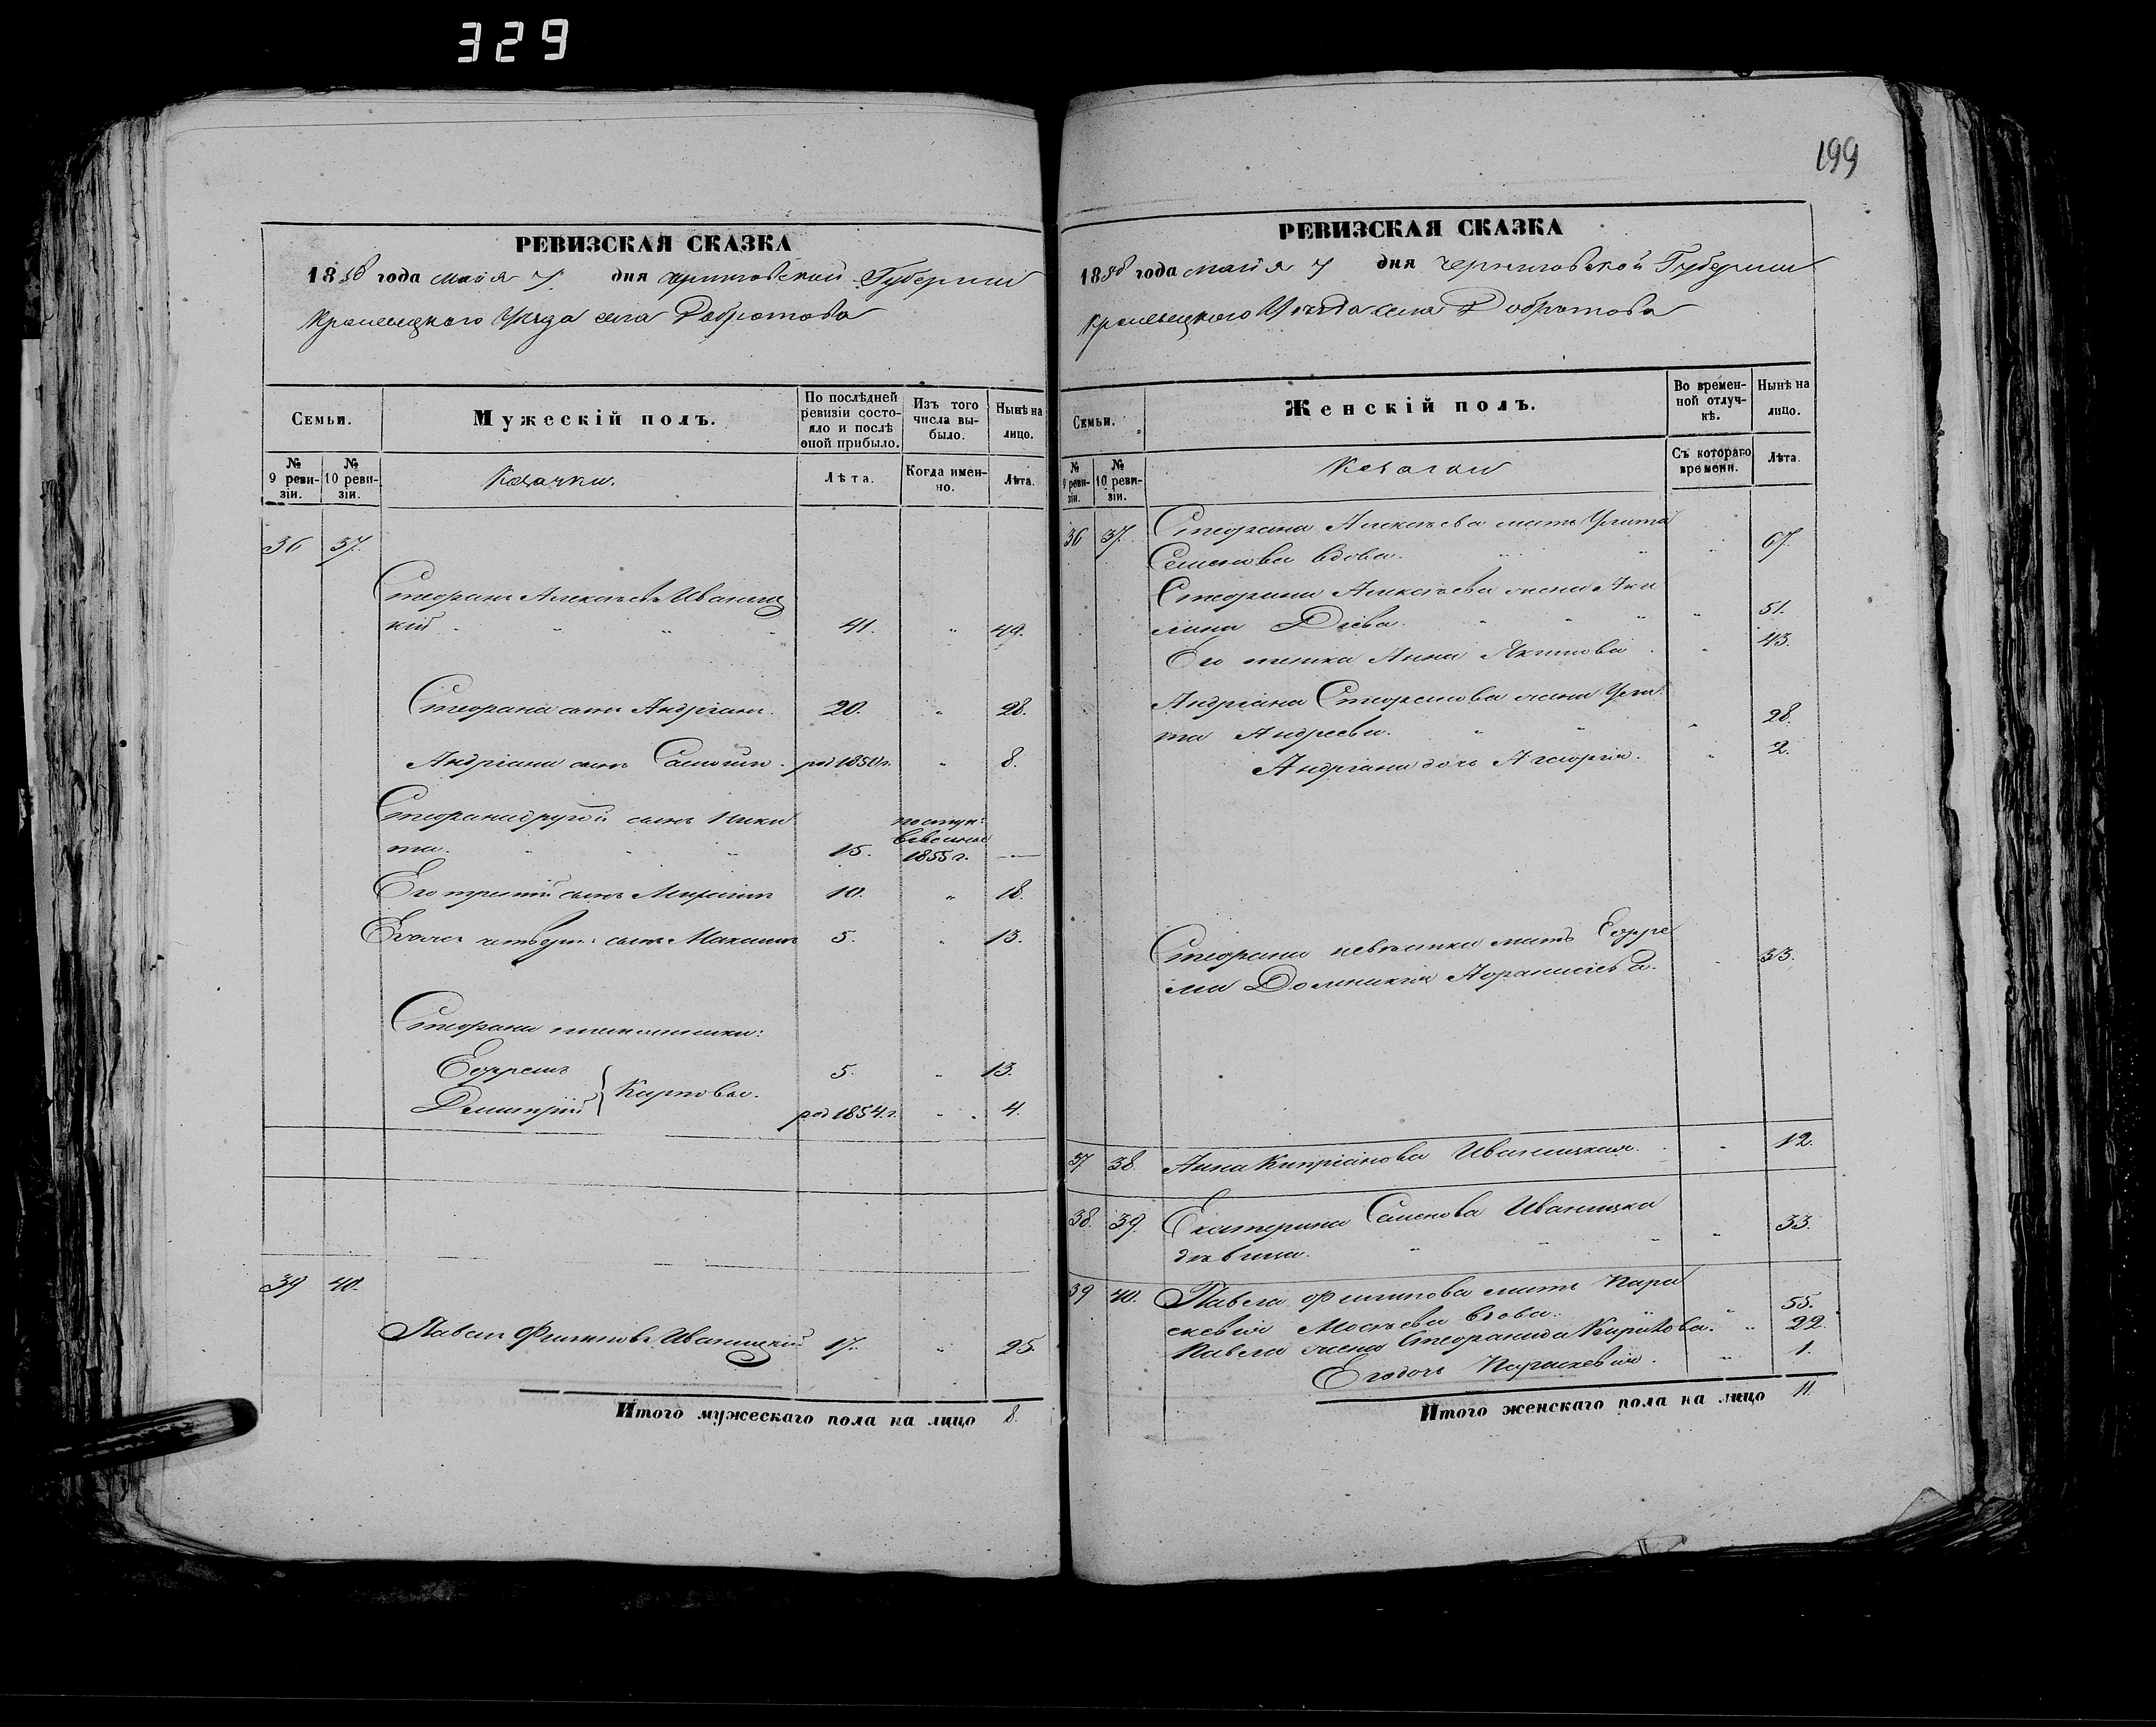 329
РЕВИЗСКАЯ СКАЗКА
1858 года мая 7 дня Черниговской Губернии
Кролевецкого Уезда села Добротова
Семьи.
Мужескій полъ.
По послѣдней ревизіи состояло и послѣ оной прибыло.
Изъ того числа выбыло.
Нынѣ на лицо.
№ 9 ревизіи.
№ 10 ревизіи.
Козачки.
Лѣта.
Когда именно.
Лѣта.
36 37.
Стефанъ Алексѣевъ Иваниц
кій " " " " 41. " 49.
Стефана сынъ Андріанъ. 20. " 28.
Андріана сынъ Самоилъ. род 1850 г. " 8.
Стефана другой сынъ Ники
та. " " " 15. поступ: 1855 г. —
Его третій сынъ Михаилъ 10. " 18.
Его четверт: сынъ Максимъ 5. " 13.
Стефана племянники:
Ефремъ 5. " 13.
Димитрій } Карповы. род 1854 г. " 4.
39 40.
Павелъ Филиповъ Иваницкій 17. " 25.
Итого мужескаго пола на лицо 8.
199
РЕВИЗСКАЯ СКАЗКА
1858 года мая 7 дня Черниговской Губернии
Кролевецкого Уезда села Добротова
Семьи.
Женскій полъ.
Во временной отлучкѣ.
Нынѣ на лицо.
№ 9 ревизіи.
№ 10 ревизіи.
Съ котораго времени.
Лѣта.
36 37. Стефана Алексѣева мать Улита
Семенова вдова. " " " 67.
Стефана Алексѣева жена Аку
лина " " " " 51.
Его Анна 43.
Андріана Стефанова жена Ули
та Андреева. " " " 28.
Андріана дочь " 2.
Стефана невѣстка мать Ефре
ма Домникия Афанасіева. 33.
37 38. Анна Кипріанова Иваницкая. " 12.
38. 39. Екатерина Семенова Иваницка
дѣвица. " " " " 33.
39 40. Павла Филипова мать Пара
скевия Мосѣева вдова. " 55.
Павла жена Стефанида " 22.
Его дочь Параскевия. " 1.
Итого женскаго пола на лицо 11.